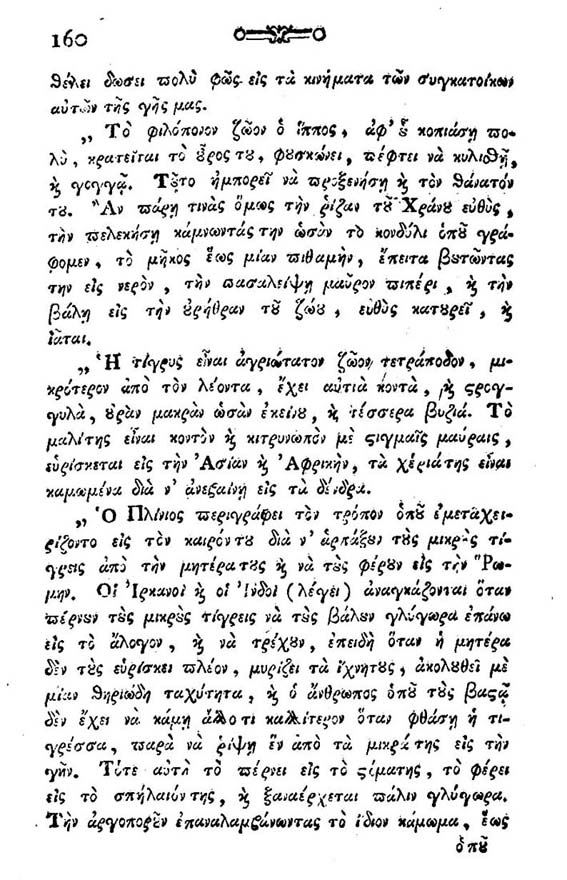 160
θέλει δώσει πολὺ φῶς εἰς τὰ κινήματα τῶν συγκατοίκων
αὐτῶν τῆς γῆς μας.
„ Τὸ φιλόπονον ζῶον ὁ ἵππος, ἀφ' ȣ̃ κοπιάσῃ πο-
λὺ, κρατεῖται τὸ ȣ̓ρος τȣ, φȣσκώνει, πέφτει νὰ κυλιθῇ,
ϗ γογγᾷ. Τȣ̃το ἠμπορεῖ νὰ προξενήσῃ ϗ τὸν θάνατόν
τȣ. Ἂν πάρῃ τινὰς ὅμως τὴν ρίζαν τȣ̃ Χράνȣ εὐθὺς,
τὴν πελεκήσῃ κάμνωντάς την ὡσὰν τὸ κονδύλι ὁπȣ̃ γρά-
φομεν, τὸ μῆκος ἕως μίαν πιθαμὴν, ἔπειτα βȣτῶντας
την εἰς νερὸν, τὴν πασαλείψῃ μαῦρον πιπέρι, ϗ τὴν
βάλῃ εἰς τὴν ȣ̓ρήθραν τȣ̃ ζώȣ, εὐθὺς κατȣρεῖ, ϗ
ἰᾶται.
„ Ἡ τίγρυς εἶναι ἀγριώτατον ζῶον τετράποδον, μι-
κρότερον ἀπὸ τὸν λέοντα, ἔχει αὐτιὰ κοντὰ, ϗ ϛρογ-
γυλὰ, ȣ̓ρὰν μακρὰν ὡσὰν ἐκείνȣ, ϗ τέσσερα βυζιά. Τὸ
μαλίτης εἶναι κοντὸν ϗ κιτρυνωπὸν μὲ ϛιγμαῖς μαύραις,
εὑρίσκεται εἰς τὴν Ἀσίαν ϗ Ἀφρικὴν, τὰ χέριάτης εἶναι
καμωμένα διὰ ν' ἀνεξαίνῃ εἰς τὰ δένδρα.
„ Ὁ Πλίνιος περιγράφει τὸν τρόπον ὁπȣ̃ ἐμεταχει-
ρίζοντο εἰς τὸν καιρόντȣ διὰ ν' ἁρπάξȣν τȣ̀ς μικρȣ̀ς τί-
γρεις ἀπὸ τὴν μητέρατȣς ϗ νὰ τȣ̀ς φέρȣν εἰς τὴν Ῥώ-
μην. Οἱ Ἱρκανοὶ ϗ οἱ Ἰνδοὶ (λέγει) ἀναγκάζονται ὅταν
πέρνȣν τȣ̀ς μικρȣ̀ς τίγρεις νὰ τȣ̀ς βάλȣν γλύγωρα ἐπάνω
εἰς τὸ ἄλογον, ϗ νὰ τρέχȣν, ἐπειδὴ ὅταν ἡ μητέρα
δὲν τȣ̀ς εὑρίσκει πλέον, μυρίζει τὰ ἴχνητȣς, ἀκολȣθεῖ μὲ
μίαν θηριώδη ταχύτητα, ϗ ὁ ἄνθρωπος ὁπȣ̃ τȣ̀ς βαϛᾷ
δὲν ἔχει νὰ κάμῃ ἄλλο τι καλλίτερον ὅταν φθάσῃ ἡ τι-
γρέσσα, παρὰ νὰ ρίψῃ ἓν ἀπὸ τὰ μικρά της εἰς τὴν
γῆν. Τότε αὐτὴ τὸ πέρνει εἰς τὸ ϛόματης, τὸ φέρει
εἰς τὸ σπήλαιόντης, ϗ ξαναέρχεται πάλιν γλύγωρα.
Τὴν ἀργοπορȣ̃ν ἐπαναλαμβάνωντας τὸ ἴδιον κάμωμα, ἕως
ὁπȣ̃